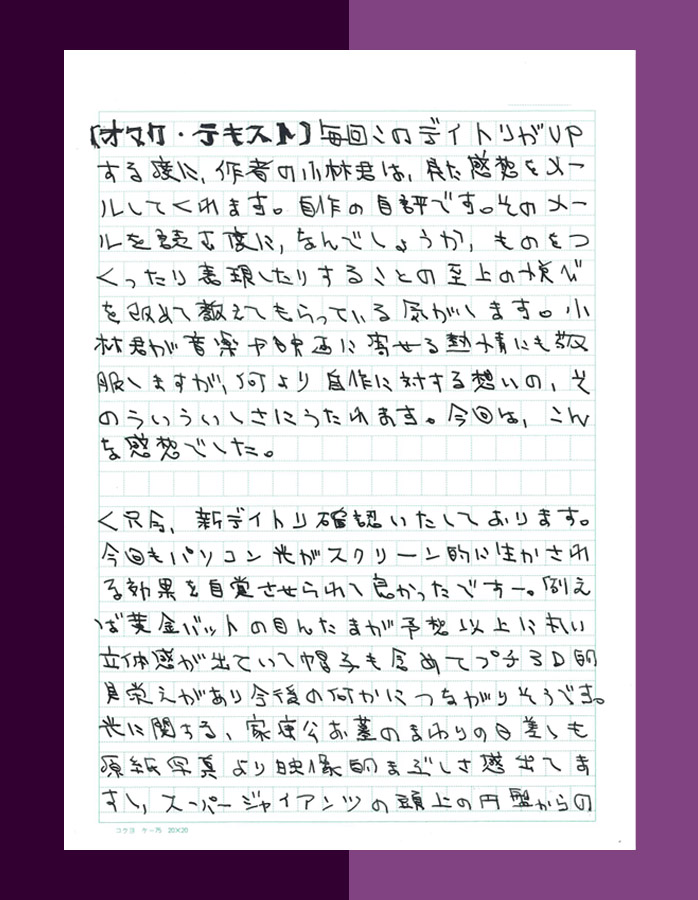 【オマケ・テキスト】毎回このデイトリがUP
する度に、作者の小林君は、見た感想をメー
ルしてくれます。自作の自評です。そのメー
ルを読む度に、なんでしょうか、ものをつ
くったり表現したりすることの至上の悦び
を改めて教えてもらっている気がします。小
林君が音楽や映画に寄せる熱情にも敬
服しますが、何より自作に対する想いの、そ
のういういしさにうたれます。今回は、こん
な感想でした。
く只今、新デイトリ確認いたしております。
今回もパソコン光がスクリーン的に生かされ
る効果を自覚させられて良かったですー。例え
ば黄金バットの目んたまが予想以上に丸い
立体感が出ていて帽子も含めてプチ3D的
見栄えがあり今後の何かにつながりそうです。
光に関する、家康公お墓のまわりの日差しも
原紙写真より映像的まぶしさ感出てま
すし、スーパージャイアンツの頭上の円盤からの
コクヨ ケー75 20×20